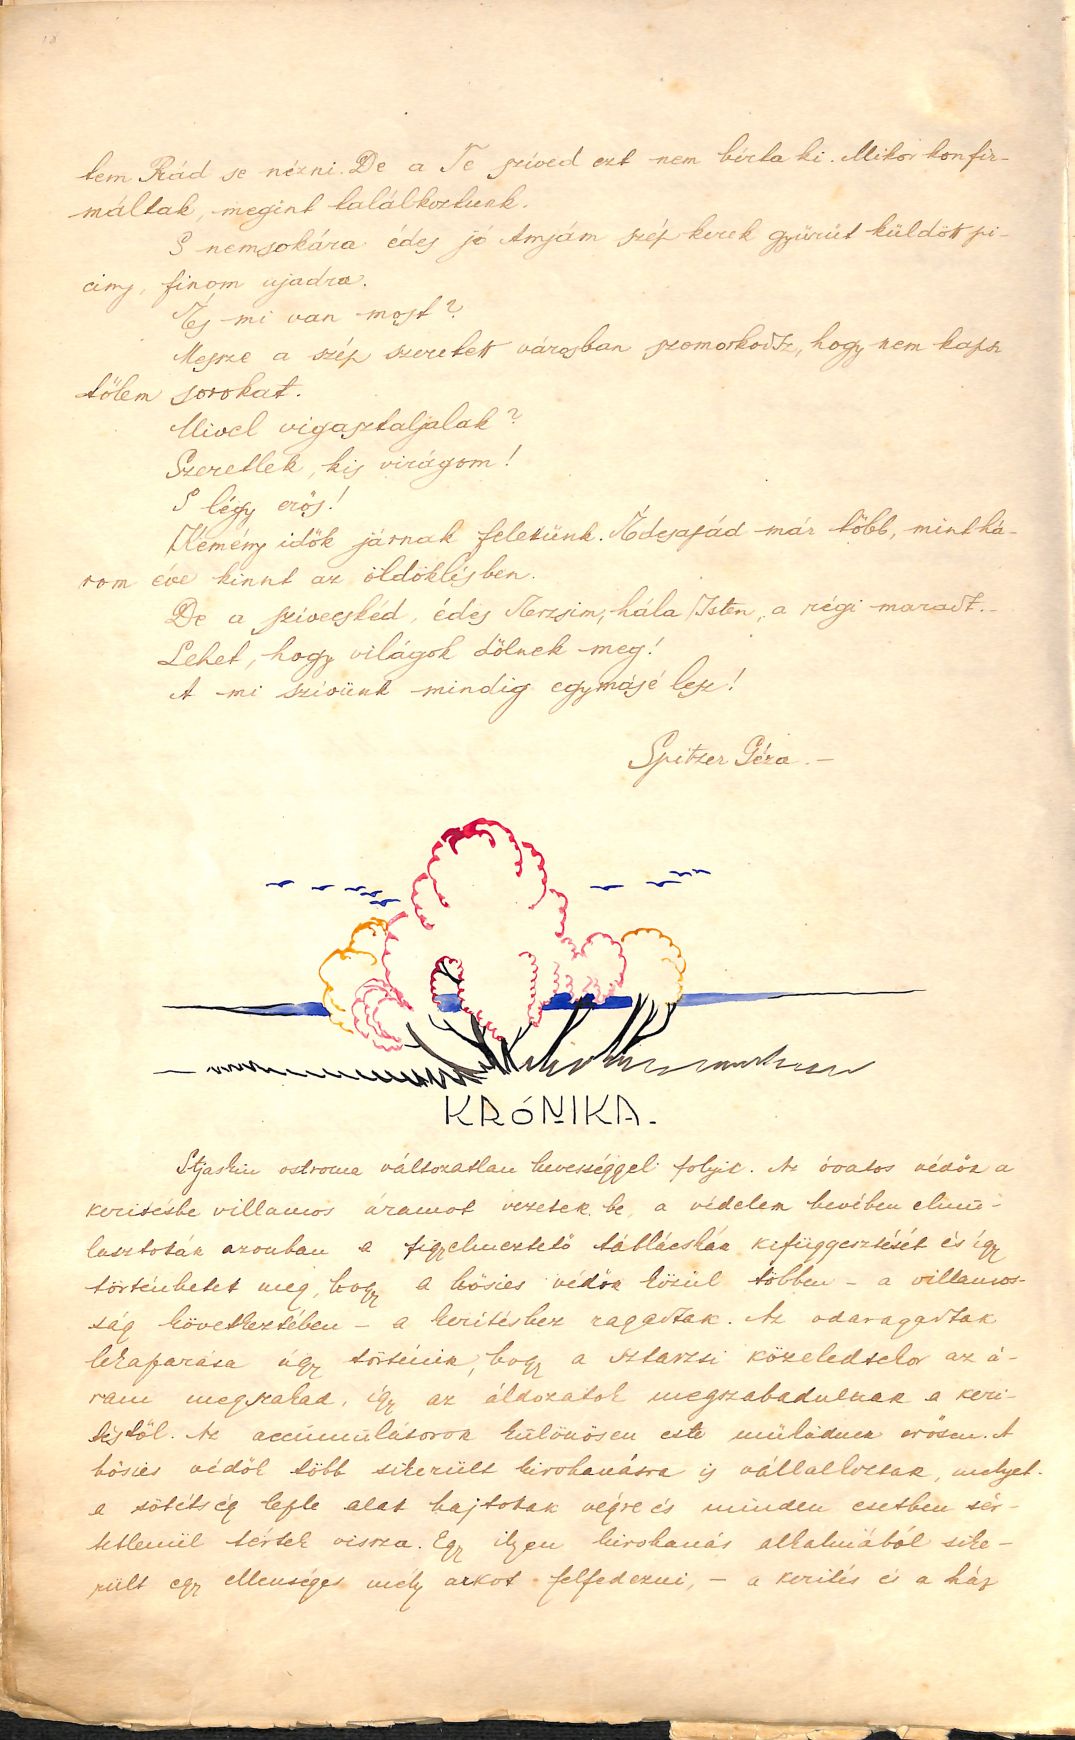 18
tem Rád se nézni. De a Te szíved ezt nem bírta ki. Mikor konfir-
máltak, megint találkoztunk.
S nemsokára édes jó Anyám szép kerek gyűrűt küldött pi-
ciny, finom ujadra.
És mi van most?
Messze a szép szeretett városban szomorkodsz, hogy nem kapsz
tőlem sorokat.
Mivel vigasztaljalak?
Szeretlek, kis virágom!
S légy erős!
Kemény idők járnak felettünk. Édesapád már több, mint há-
rom éve kinnt az öldöklésben.
De a szívecskéd, édes Merzsim, hála Isten, a régi maradt.-
Lehet, hogy világok dőlnek meg!
A mi szívünk mindig egymásé lesz!
Spitzer Géza.-
KRÓNIKA.
Stjaskin ostroma változatlan hevességgel folyik. Az óvatos védők a
keritésbe villamos áramot vezetek be, a védelem hevében elmu-
lasztották azonban a figyelmeztető táblácskák kifüggesztését és így
történhetet meg, hogy a hősies védők közül többen - a villamos-
ság következtében - a keritéshez ragadtak. Az odaragadtak
lekaparása úgy történik, hogy a sztarzsi közeledtekor az á-
ram megszakad, így az áldozatok megszabadulnak a keri-
téstől. Az accumulátorok különösen este müködnek erősen. A
hősies védők több sikerült kirohanásra is vállalkoztak, melyet
a sötétség leple alat hajtotak végre és minden esetben sér-
tetlenül tértek vissza. Egy ilyen kirohanás alkalmából sike-
rült egy ellenséges mély árkot felfedezni, - a kerités és a ház